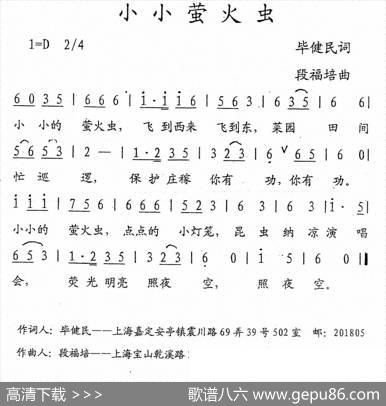 小小萤火虫
1=D 2/4 毕健民词
段福培曲
6 0 3 5 | 6 6 6 | i · i i 6 | 5 6 3 | 6 3 5 | 6 6 |
小 小的 萤火虫， 飞 到西来 飞到东， 菜园 田 间
5 6 5 3 | 2 — | 1 · 2 3 5 | 3 2 3 | 6 ∨ 6 5 | 6 0 |
忙 巡 逻， 保 护庄稼 你有 功，你有 功。
i i i | 7 5 6 | 1 · 2 3 5 | 5 2 3 | 6 3 | 6 3 | i · 5 |
小小的 萤火虫， 点点的 小灯笼， 昆虫 纳凉演 唱
6 5 3 | 1 · 2 3 5 | 2 3 | 6 0 | i 5 | 6 0 |
会， 荧光明亮 照夜 空， 照夜 空。
作词人：毕健民——上海嘉定安亭镇震川路69弄39号502室 邮：201805
作曲人：段福培——上海宝山乾溪路
高清下载 >>> 歌谱八六 www.gepu86.com